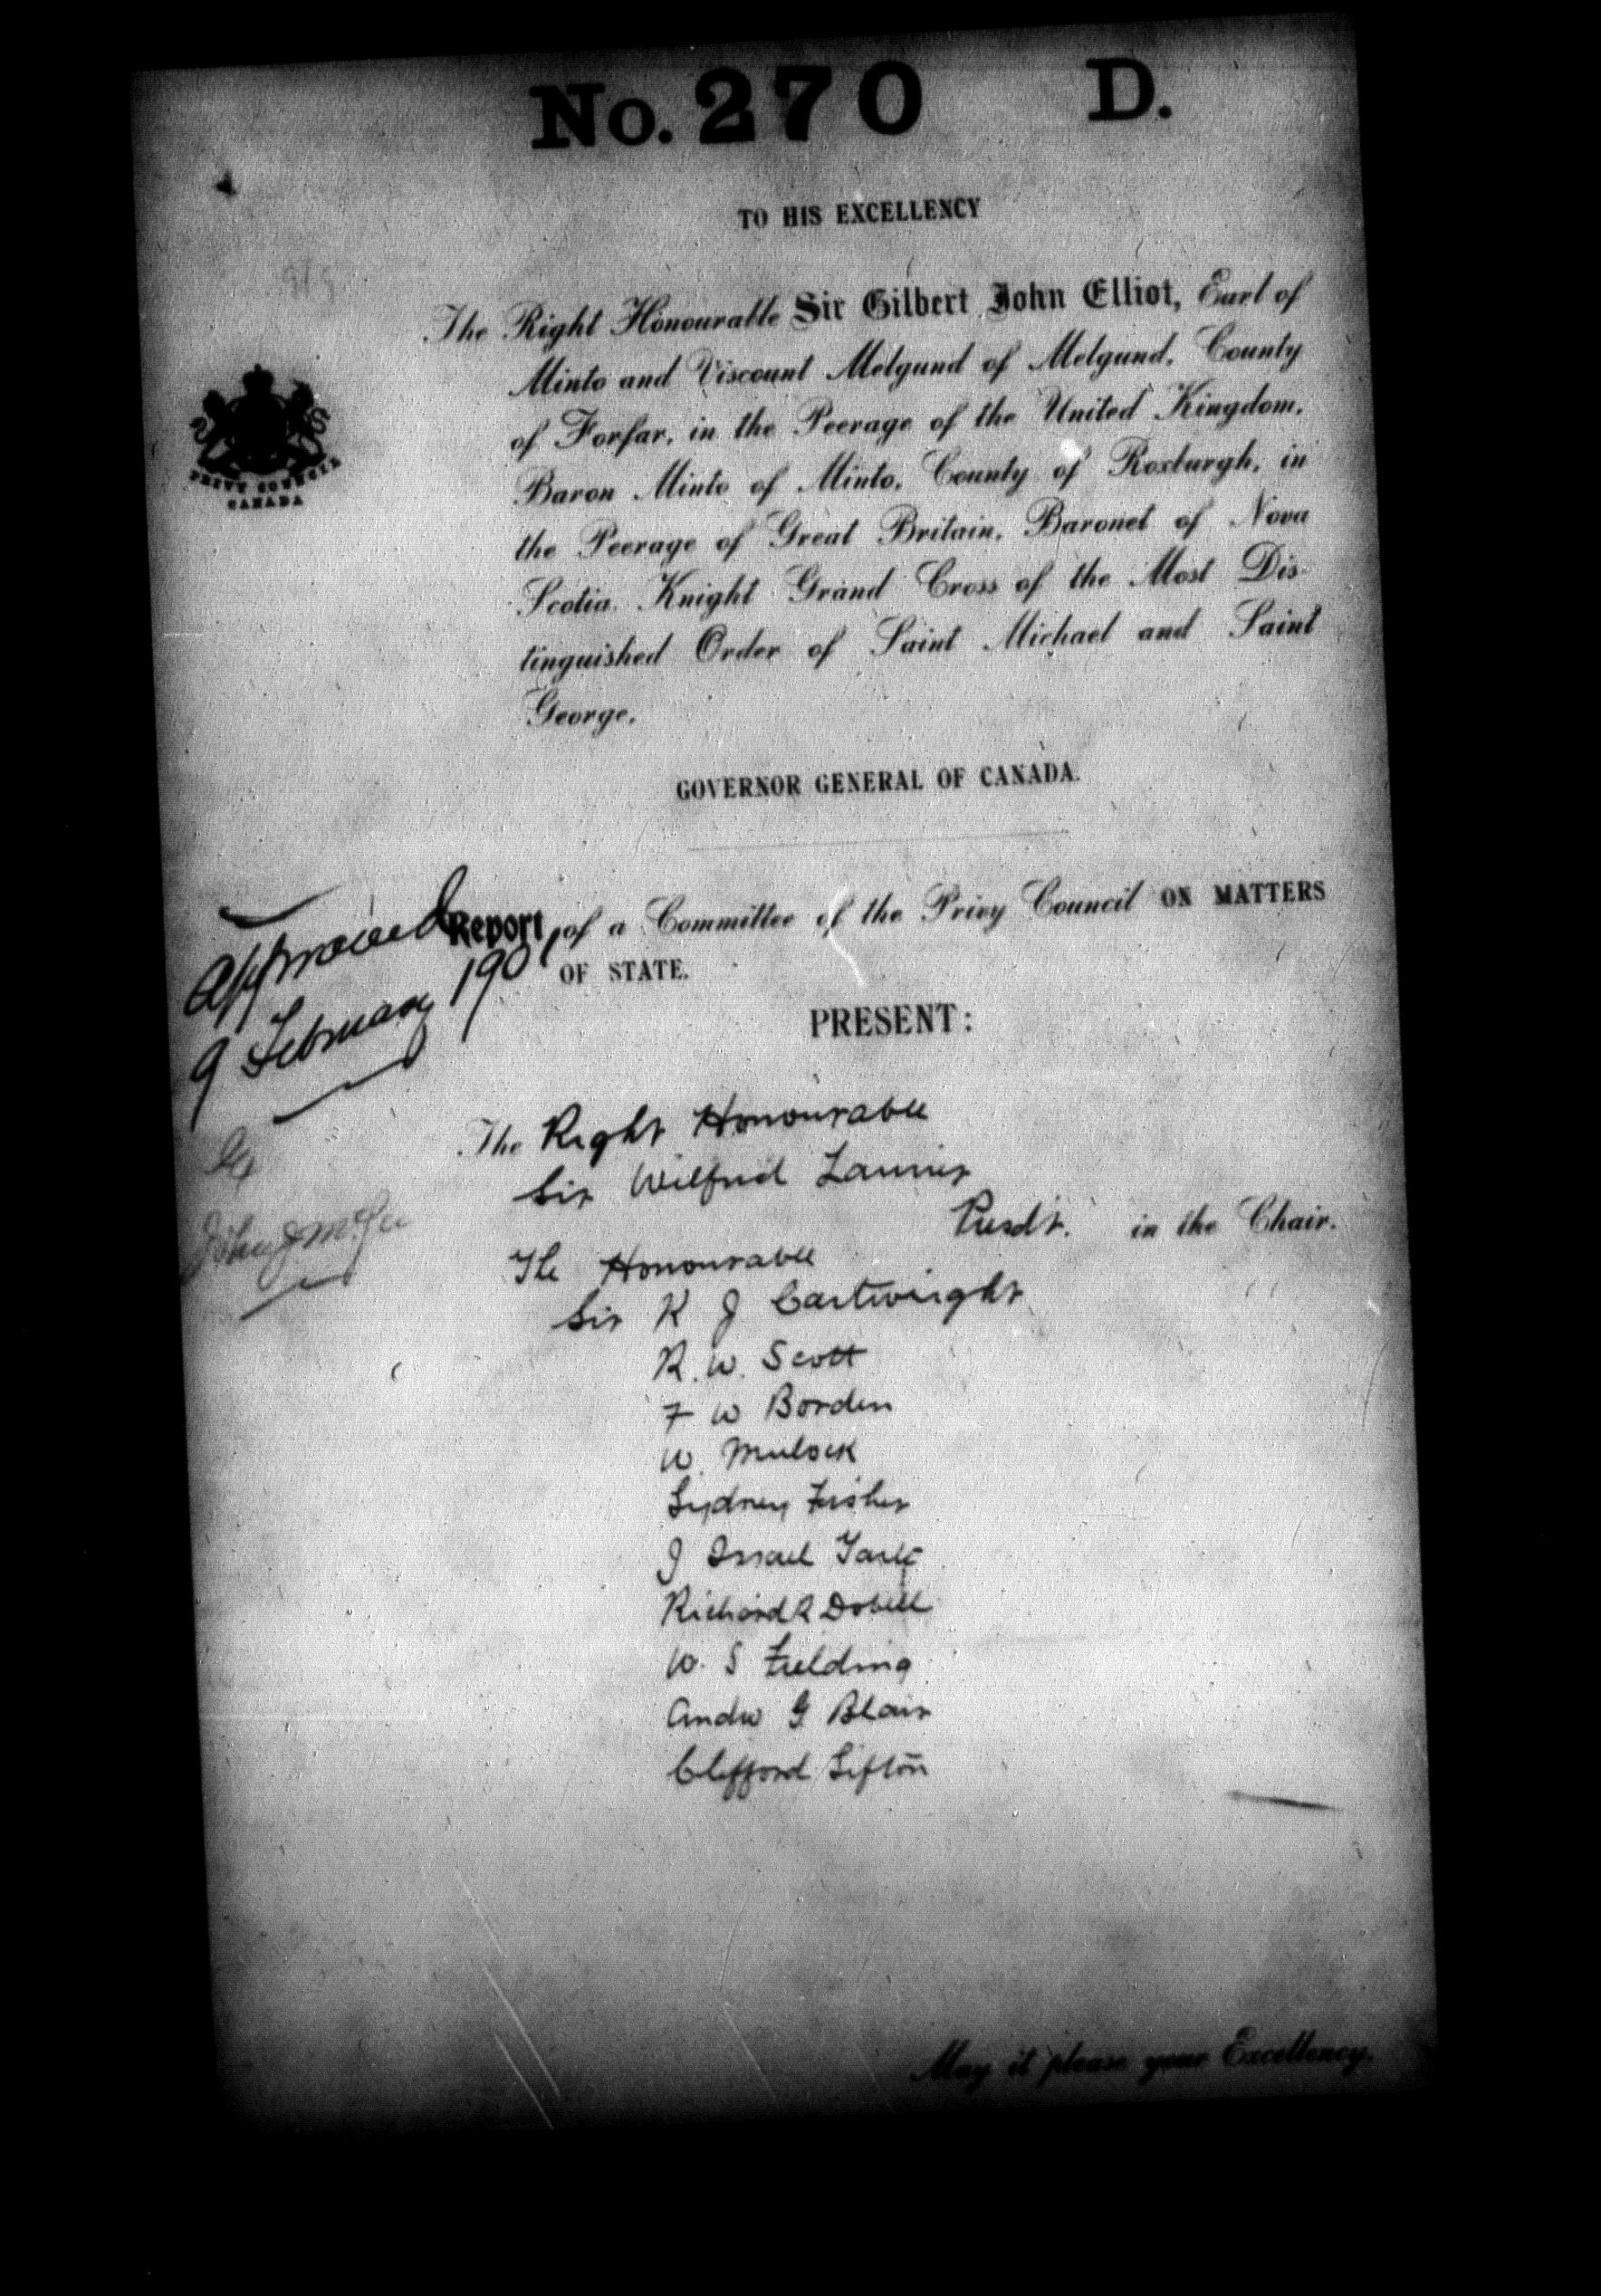 No. 270 D.
TO HIS EXCELLENCY
The Right Honourable Sir Gilbert John Elliot, Earl of
Minto and Viscount Melgund of Melgund, County
of Forfar, in the Peerage of the United Kingdom,
Baron Minto of Minto, County of Roxburgh, in
the Peerage of Great Britain, Baronet of Nova
Scotia, Knight Grand Cross of the Most Dis-
tinguished Order of Saint Michael and Saint
George,
PRIVY COUNCIL
CANADA
GOVERNOR GENERAL OF CANADA.
Approved
9 February 1901
Report of a Committee of the Privy Council ON MATTERS
OF STATE.
PRESENT:
The Right Honourable
Sir Wilfrid Laurier
Presdt. in the Chair.
The Honourable
Sir R J Cartwright
R. W. Scott
F W Borden
W. Mulock
Sydney Fisher
J Israel Tarte
Richard R Dobell
W. S Fielding
Andw G Blair
Clifford Sifton
John J McGee
May it please your Excellency.